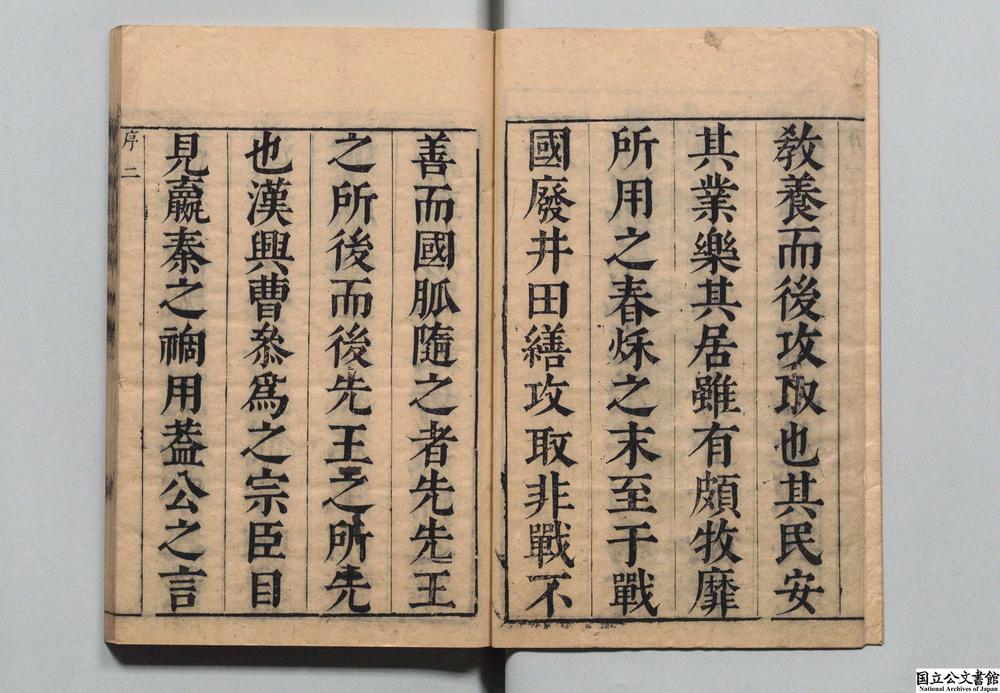 教養而後攻取也其民安
其業樂其居雖有頗牧靡
所用之春秌之末至于戰
國廢井田繕攻取非戰不
善而國胍隨之者先先王
之所後而後先王之所先
也漢興曹叅爲之宗臣目
見嬴秦之禍用葢公之言
序 二
国立公文書館
National Archives of Japan